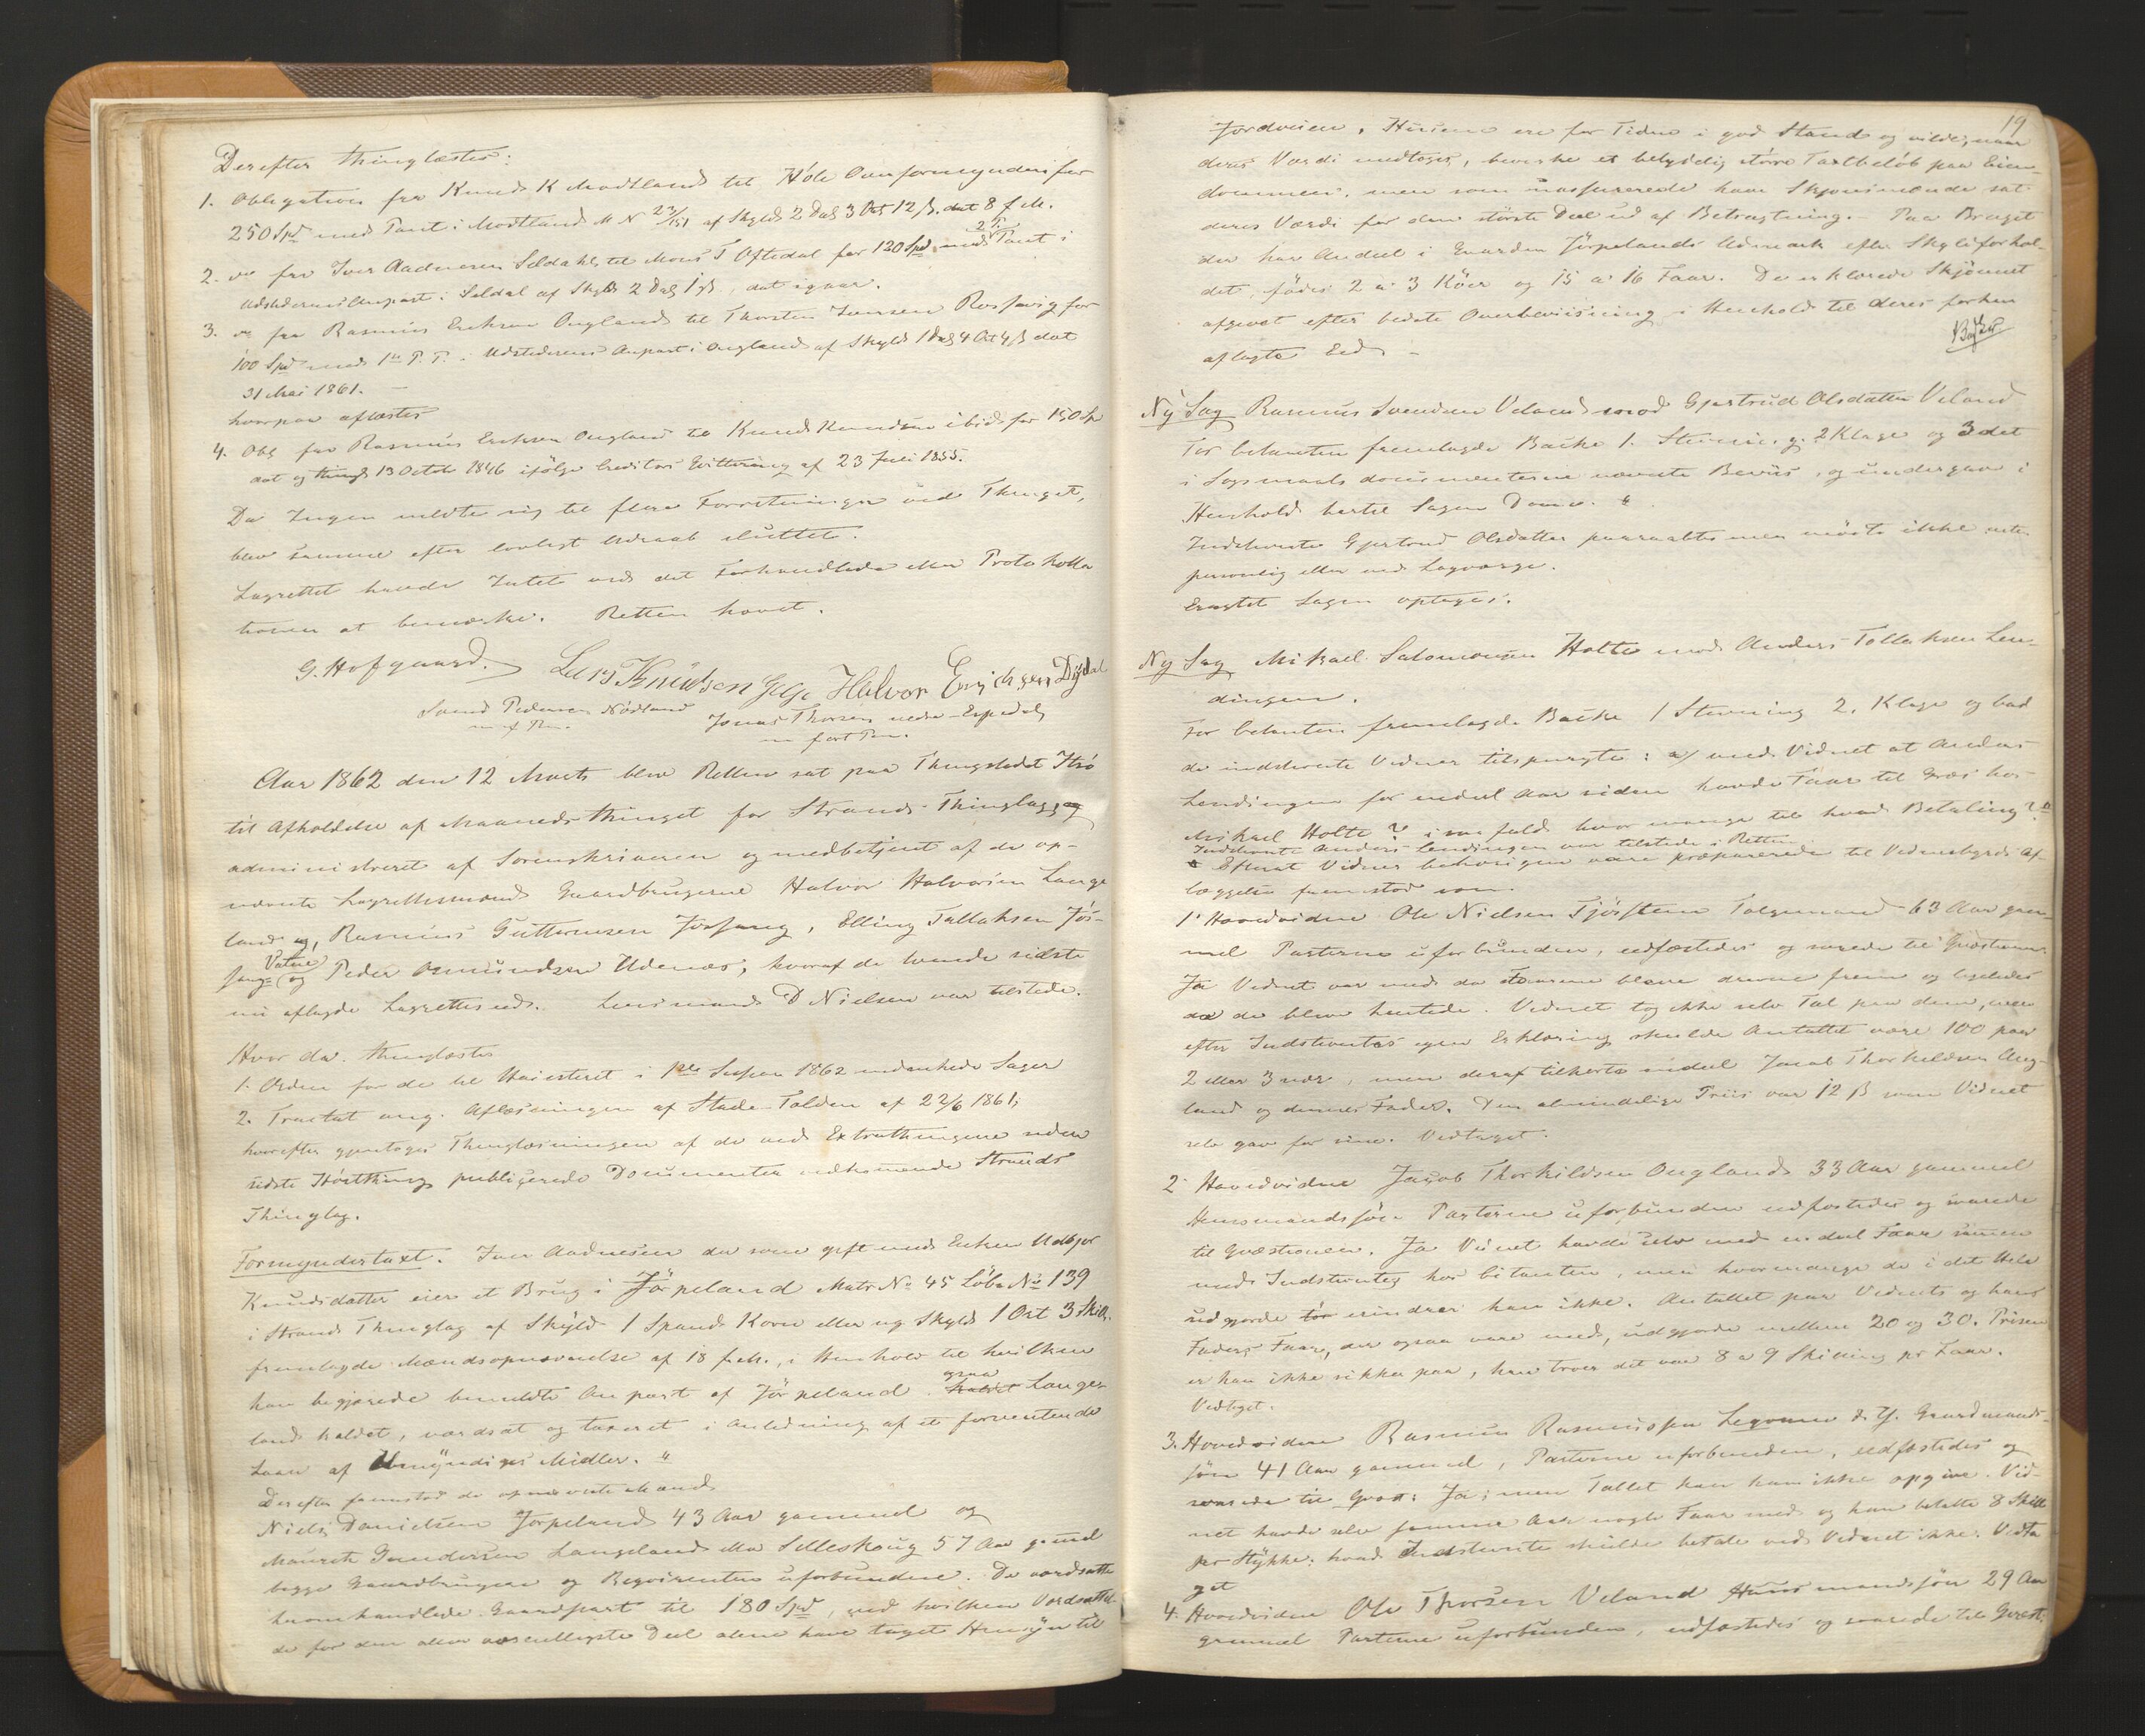 Derefter thinglæstes:
1. Obligation fra Knud K Modtland til Höle Overformynderi for
250 Spd med Pant i Modtland M N 23/151 af Skyld 2 Dal 3 Ort 12 ß. dat 8 f. M.
2. do fra Iver Aadnesen Seldahl til Mons T Oftedal for 120 Spd med 2 P. Pant i
Udstederens Anpart i Seldal af Skyld 2 Dal 1 ß, dat igaar.
3. do fra Rasmus Eriksen Ougland til Thorsten Iversen Rossavig for
100 Spd med 1ste P. P. i Udstederens Anpart i Ougland af Skyld 1 Dal 4 Ort 4 ß dat
31 Mai 1861. —
hvorpaa aflæstes
4. Obl fra Rasmus Eriksen Ougland til Knud Knudsen ibid for 150 Sp
dat og thingl 13 Octob 1846 ifölge Creditors Qvittering af 23 Juli 1855.
Da Ingen meldte sig til flere Forretninger ved Thinget,
blev samme efter lovligt Udraab sluttet.
Lagrettet havde Intet ved det Forhandlede eller Protokolla
tionen at bemærke. Retten hævet.
G. Hofgaard. Lars Knudsen Halvor Erichsen Dysdal
Svend Pedersen Nödland Jonas Thorsen nedre Espedal
m f Pen. m fört Pen.
Aar 1862 den 12 Marts blev Retten sat paa Thingstedet
til Afholdelse af Maanedsthinget for Strands Thinglag og
administreret af Sorenskriveren og medbetjent af de op-
nævnte Lagrettesmænd Gaardbrugerne Halvor Halvorsen Lange
land og, Rasmus Guttormsen Jösang, Elling Tollaksen Jös-
sang Vatne og Peder Osmundsen Udenæs, hvoraf de tvende sidste
nu aflagde Lagretteseed. Lensmand D Nielsen var tilstede.
Hvor da thinglæstes
1. Orden for de til Höiesteret i 1ste Session 1862 indankede Sager
2. Tractat ang. Aflösningen af Stade-Tolden af 22/6 1861,
hvorefter gjentoges Thinglæsningen af de ved Extrathingene siden
sidste Höstthing publicerede Documenter vedkommende Strands
Thinglag.
Formyndertaxt. Iver Aadnesen der som gift med Enken
Knudsdatter eier et Brug i Jörpeland Matr No 45 Löbe No 139
i Strands Thinglag af Skyld 1 Spand Korn eller ny Skyld 1 Ort 3 Skill.
fremlagde Mændsopnævnelse af 18 f. M., i Henhold til hvilken
han begjærede bemeldte Anpart af Jörpeland, Lange-
land kaldet, værdsat og taxeret i Anledning af et forventende
Laan af Umyndiges Midler. "
Derefter fremstod de opnævnte Mænd
Niels Danielsen Jörpeland 43 Aar gammel og
Gundersen Langeland eller Selleskoug 57 Aar gaml
begge Gaardbrugere og Reqvirenten uforbundne. De værdsatte
heromhandlede Gaardpart til 180 Spd, ved hvilken Værdsættel
de for den allervæsentligste Deel alene have taget Hensyn til
19
Jordveien. Husene ere for Tiden i god Stand og vilde, naar
deres Værdi medtoges, bevirke et betydelig större Taxtbelöb paa Eien-
dommen, men som uassurerede have Skjönsmændene sat
deres Værdi for den störste Deel ud af Betragtning. — Paa Bruget
der har Andeel i Gaarden Jörpelands Udmark efter Skyldforhol-
det, födes 2 a 3 Köer og 15 a 16 Faar. De erklærede Skjönnet
afgivet efter bedste Overbeviisning i Henhold til deres forhen
aflagte Eed. —
Ny Sag Rasmus Svendsen Veland mod Gjertrud Olsdatter Veland
For Citanten fremlagde Bache 1. Stevning. 2 Klage og 3 det
i Sagsmaalsdocumenterne nævnte Beviis, og undergav i
Henhold hertil Sagen Dom. "
Indstevnte Gjertrud Olsdatter paaraabtes men mödte ikke enten
personlig eller ved Lagværge.
Eragtet Sagen optages.
Ny Sag Mikael Salomonsen Holte mod Anders Tollaksen Len-
dingen.
For Citanten fremlagde Bache 1 Stevning 2. Klage og bad
de indstevnte Vidner tilspurgte: a/ med Vidnet at Anders
Lendingen for endeel Aar siden havde Faar til Græs hos
Mikael Holte? i saa fald hvor mange til hvad Betaling? "
Indstevnte Anders Lendingen var tilstede i Retten.
Efterat Vidner behörigen vare præparerede til Vidnesbyrds Af-
læggelse fremstod som
1' Hovedvidne Ole Nielsen Tjösstem 63 Aar gam-
mel Parterne uforbunden, edfæstedes og svarede til Qvæstionen:
Ja Vidnet var med da Faarene bleve drevne frem og ligeledes
da de bleve hentede. Vidnet tog ikke selv Tal paa dem, men
efter Indstevntes egen Erklæring skulde Antallet være 100 paa
2 eller 3 nær, men deraf tilhörte endeel Jacob Thorkildsen Oug-
land og dennes Fader. Den almindelige Priis var 12 ß som Vidnet
selv gav for sine. Vedtaget.
2' Hovedvidne Jacob Thorkildsen Ougland 33 Aar gammel
Huusmandssön Parterne uforbunden edfæstedes og svarede
til Qvæstionen. Ja Vidnet havde selv med endeel Faar sammen
med Indstevnte hos Citanten, men hvormange de i det Hele
udgjorde erindrer han ikke. Antallet paa Vidnets og hans
Faders Faar, der ogsaa vare med, udgjorde mellem 20 og 30. Prisen
er han ikke sikker paa, han troer det var 8 a 9 Skilling pr Faar.
Vedtaget.
3. Hovedvidne Rasmus Rasmussen Gaardmands-
sön 41 Aar gammel, Parterne uforbunden, edfæstedes og
svarede til Qvæst: Ja; men Tallet kan han ikke opgive. Vid-
net havde selv samme Aar nogle Faar med og han betalte 8 Skill
pr Stykke; hvad Indstevnte skulde betale ved Vidnet ikke. Vedta
get
4. Hovedvidne Ole Thorsen Veland Huusmandssön 29 Aar
gammel Parterne uforbunden, edfæstedes og svarede til Qvæst: